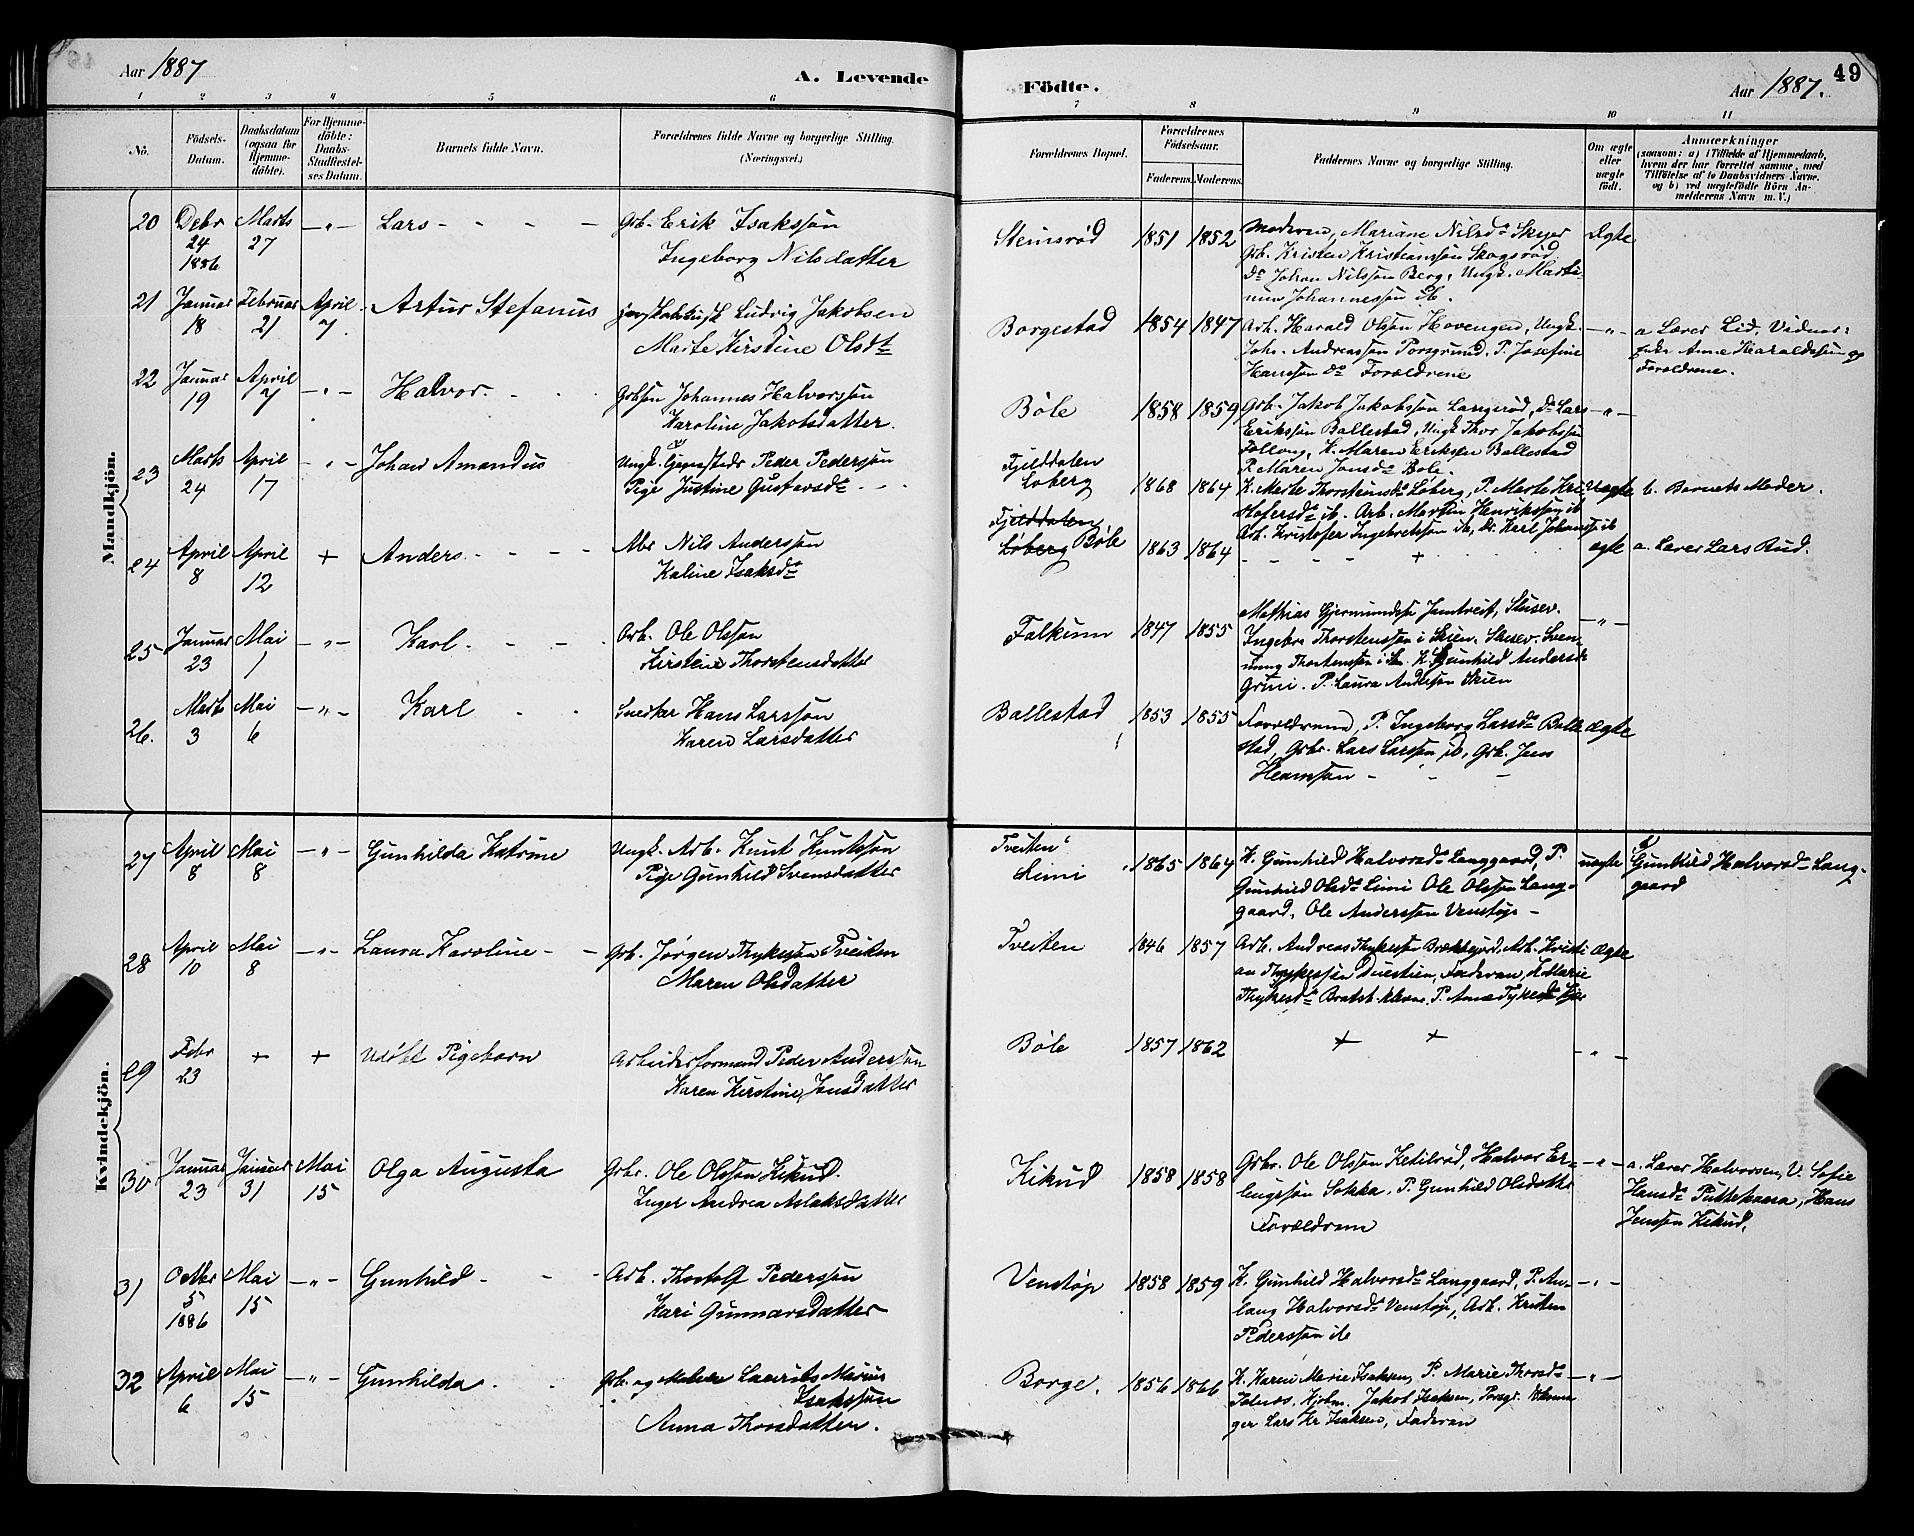 Aar 1887
A. Levende
Födte.
Aar 1887.
49
1 2 3 4 5 6 7 8 9 10 11
No.
Födsels-Datum.
Daabsdatum (ogsaa for Hjemmedöbte).
For Hjemmedöbte: Daabs-Stadfæstelses Datum.
Barnets fulde Navn.
Forældrenes fulde Navne og borgerlige Stilling.
(Næringsvei.)
Forældrenes Bopæl.
Forældrenes Födselsaar.
Faderens. Moderens.
Faddernes Navne og borgerlige Stilling.
Om ægte eller uægte födt.
Anmærkninger
(saasom: a) i Tilfælde af Hjemmedaab,
hvem der har forrettet samme, med
Tilföielse af to Daabsvidners Navne,
og b) ved uægtefödte Börn An-
melderens Navn m. V.)
Mandkjön.
20 Debr 24 1886 Marts 27 -„- Lars - - - - Grb. Erik Isakssøn
Ingeborg Nilsdatter
Stensrød 1851 1852 Moderen, Mariane Nilsdr Skyer
Grb. Kristen Kristianssøn Skogsrød
Do Johan Nilssøn Berg, Ungk. Marti-
nius Johannessøn ib. Ægte
21 Januar 18 Februar 21 April 7 Artur Stefanus Ludvig Jakobsen
Marte Kirstine Olsdtr
Borgestad 1854 1847 Arb. Harald Olsøn Hovengen, Ungk.
Joh. Andreassøn Porsgrund, P. Josefine
Hanssøn do Forældrene -„- a Lærer Lid, Vidner:
Anne Haraldssøn og
Forældrene.
22 Januar 19 April 7 -„- Halvor. - - Grbsøn Johannes Halvorssøn
Karoline Jakobsdatter.
Bøle 1858 1859 Grb. Jakob Jakobssøn Langerød, do Lars
Erikssøn Ballestad, Ungk Thor Jakobssøn
K. Maren Eriksen Ballestad
P. Maren Jonsdr Bøle. -„-
23 Marts 24 April 17 -„- Johan Amandus Ungk. Peder Pederssøn
Pige Justine Gustavsdr - -
Fjelddalen
Løberg 1868 1864 K. Marte Thorstensdr Løberg, P. Marte Kri-
stofersdr ib. Arb. Martin Henrikssøn ib
Arb. Kristofer Ingebretssøn ib, Do. Karl Johanss. ib uægte b. Barnets Moder.
24 April 8 April 12 + Anders. - - - Arb Nils Anderssøn
Kaline Isaksdr
Fjelddalen
Løberg Bøle 1863 1864 - - - - + ægte a. Lærer Lars Rud.
25 Januar 23 Mai 1 -„- Karl. - - - Arb. Ole Olssøn
Kirstine Thorstensdatter
Falkum 1847 1855 Mathias Gjermundssøn Jamtveit, Slusev.
Ingebr. Thorstenssøn i Skien. Slusev. Sven-
nung Thorstenssøn i Sk. K. Gunhild Andersdr
Grini. P. Laura Andersøn Skien -„-
26. Marts 3 Mai 6 -„- Karl - - Snedker Hans Larssøn
Karen Larsdatter
Ballestad 1853 1855 Forældrene, P. Ingeborg Larsdr Balle-
stad, Grbr. Lars Larssøn ib, Grb. Jens
- - - Ægte
Kvindekjön.
27 April 8 Mai 8 -„- Gunhilda Katrine Ungk. Arb. Knut Knutssøn
Pige Gunhild Svensdatter
Tveiten
Limi 1865 1864 K. Gunhild Halvorsdr Langgaard, P.
Gunhild Olsdr Limi Ole Olssøn Lang-
gaard, Ole Anderssøn Venstøp - uægte Gunhild Halvorsdr Lang-
gaard
28 April 10 Mai 8 -„- Laura Karoline - - Grb. Jørgen Thykessøn Tveiten
Maren Olsdatter
Tveiten 1846 1857 Arb. Andreas Thykessøn Brækkejord, Arb. Kristi-
an Thykessøn Duestien, Faderen, K Marie
Thykesdr P. Anne Tykesdr Ægte
29 Febr 23 + + Udøbt Pigebarn Arbeidsformand Peder Anderssøn
Karen Kirstine Jensdatter
Bøle 1857 1862 + + -„-
30 Januar 23 Januar 31 Mai 15 Olga Augusta Grbr. Ole Olssøn Kikud.
Inger Andrea Aslaksdatter
Kikud 1858 1858 Grbr. Ole Olssøn Ketilrød, Halvor Er-
lingssøn Sokka, P. Gunhild Olsdatter
Forældrene -„- a. Lærer Halvorsen, V. Sofie
Hansdr Puttekaasa, Hans
Jenssøn Kikud.
31 Octbr 5 1886 Mai 15 -„- Gunhild - - - Arb. Thorolf Pederssøn
Kari Gunnarsdatter
Venstøp 1858 1859 K. Gunhild Halvorsdr Langgaard, P. An-
laug Halvorsdr Venstøp, Arb. Kristen
Pederssøn ib -„-
32 April 6 Mai 15 -„- Gunhilda. - - Grb. og Maler Laurits Marius
Isakssøn
Anna Thorsdatter.
Borge. 1856 1866 K. Karen Marie Isaksen, P. Marie Thorsdr
Jakob Isaksen, Porsgr.
ger Lars Kr Isaksen, Faderen -„-